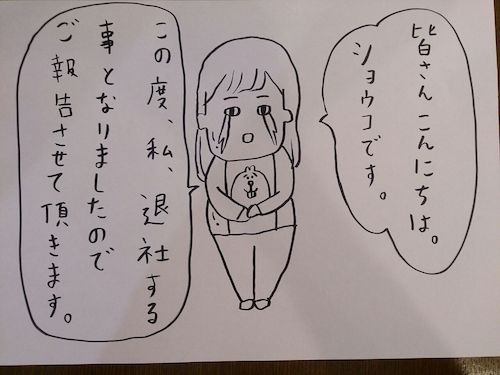 皆さんこんにちは。
ショウコです。
この度、私、退社する
事となりましたので
ご報告させて頂きます。